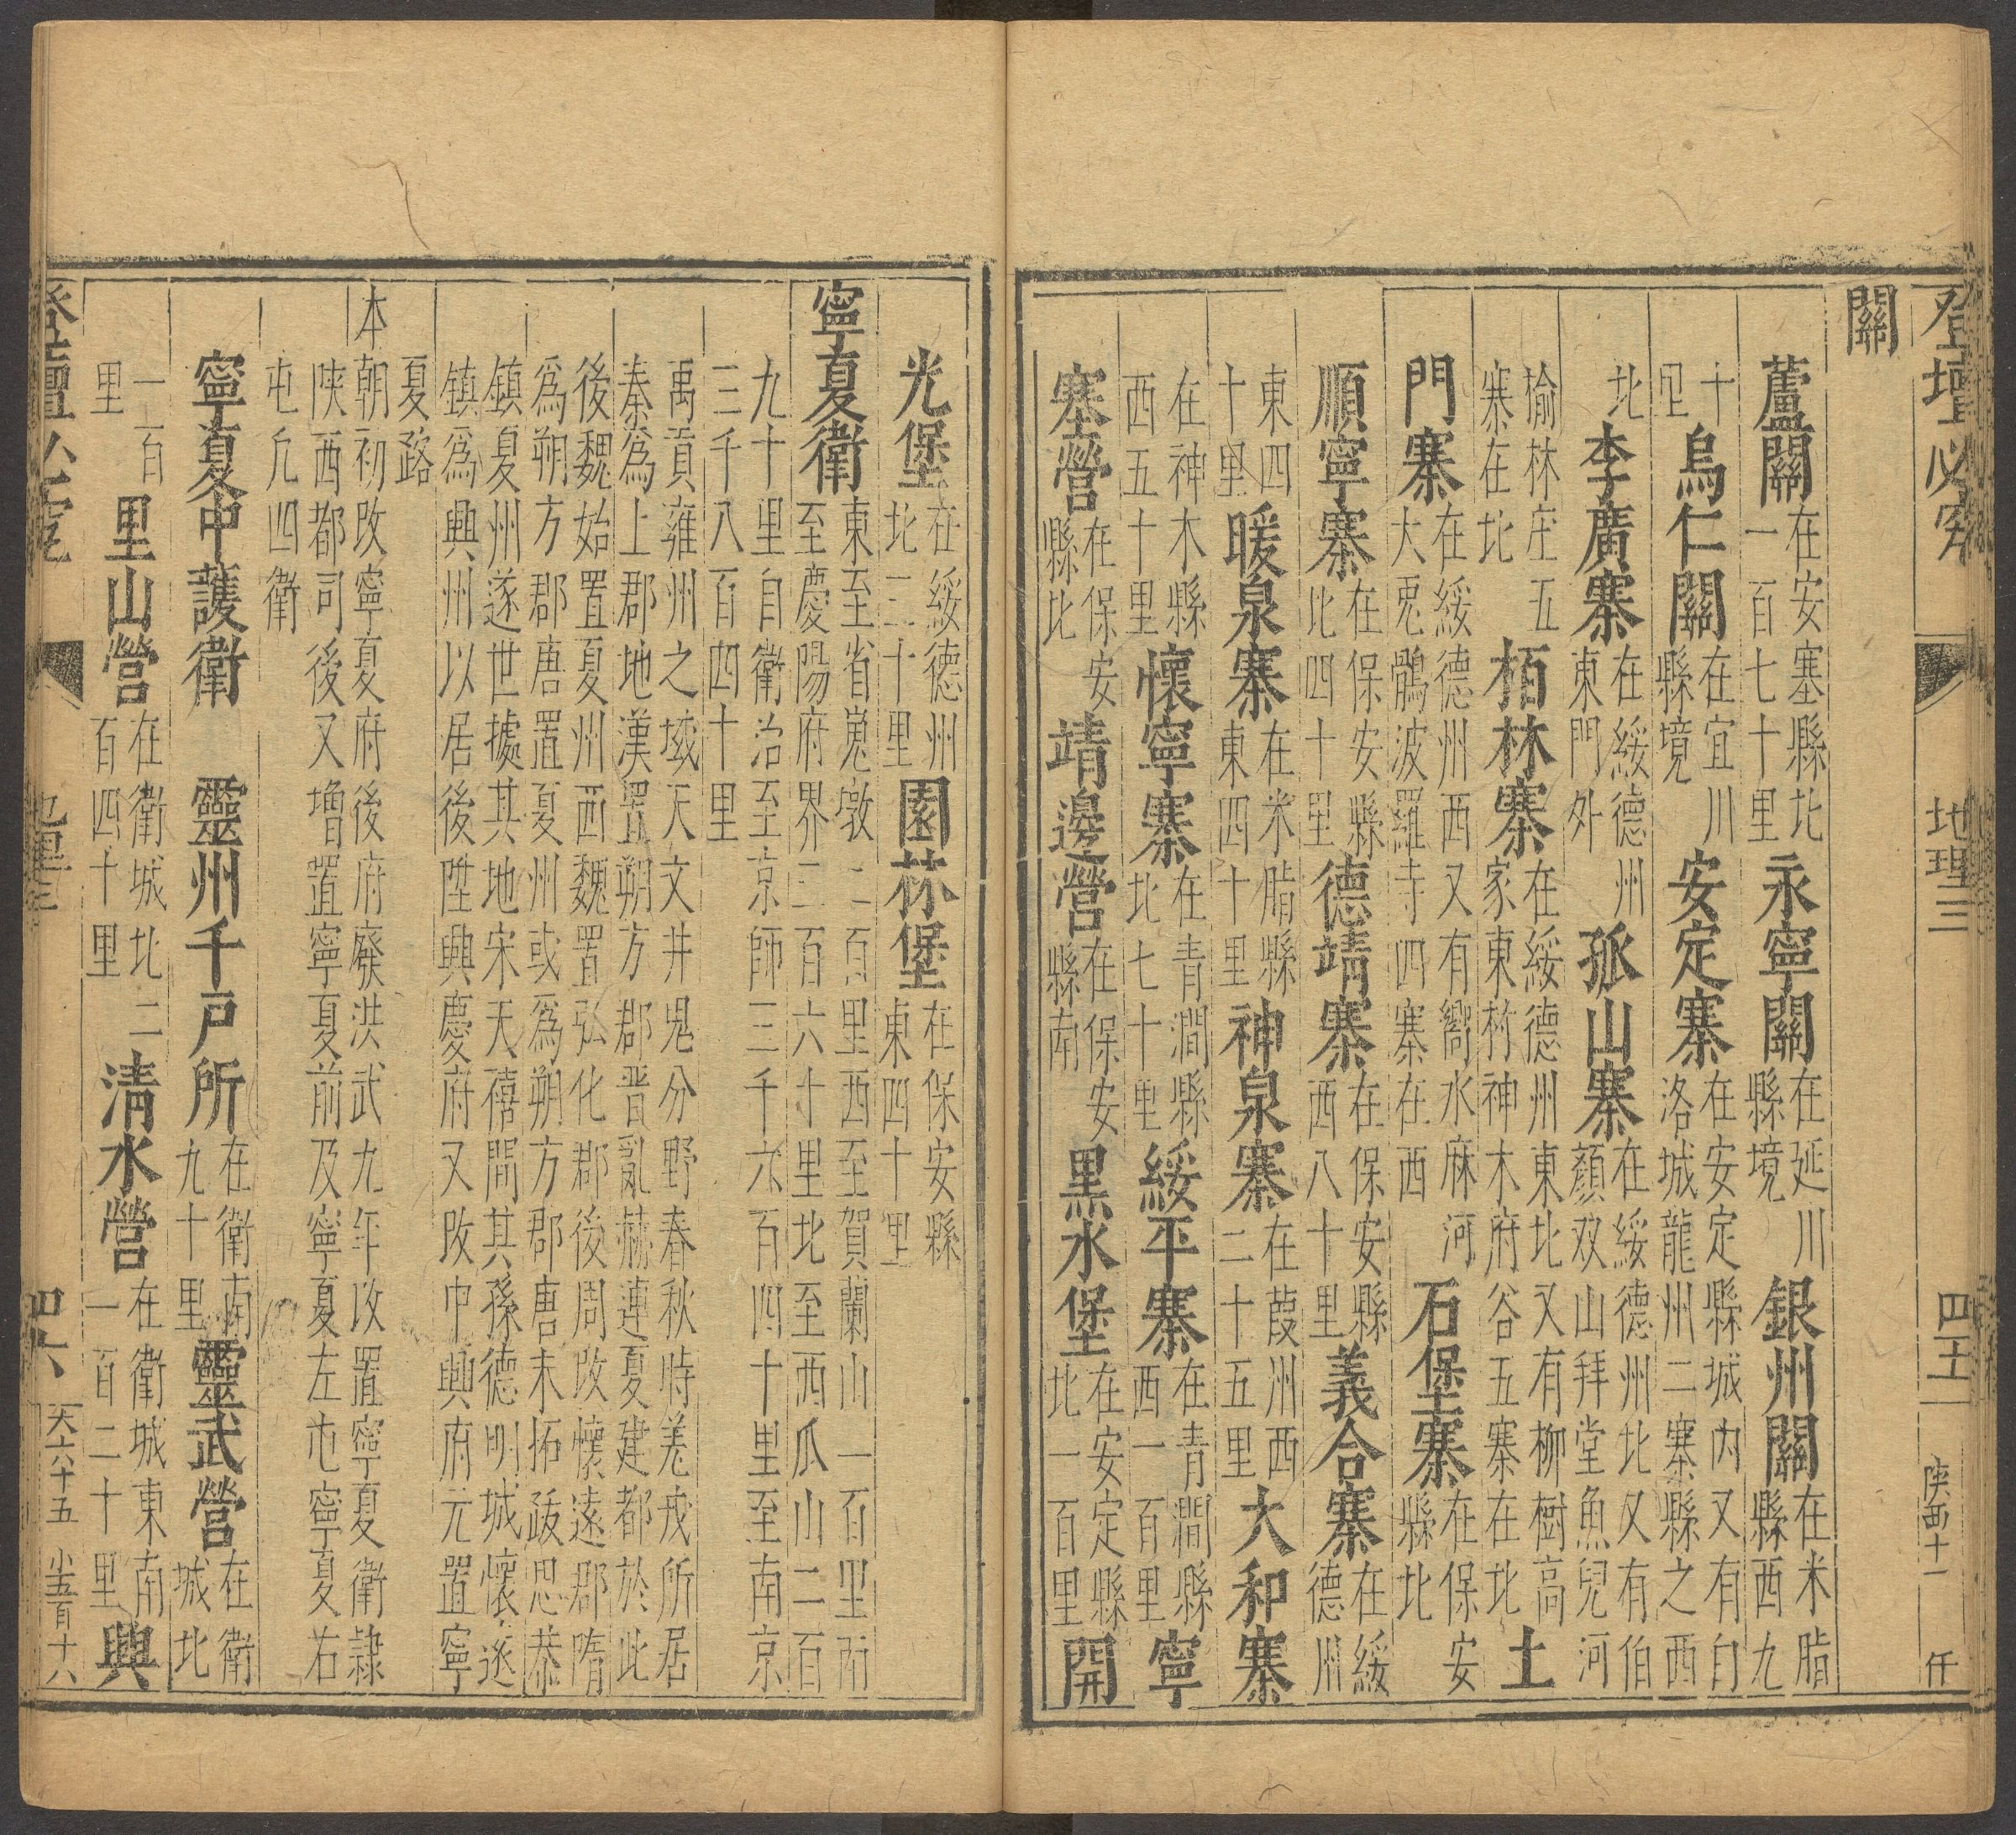 登壇必究　地理三　四十五　陝西十一　仟
關
蘆關在安塞縣北一百七十里永寧關在延川縣境銀州關在米脂縣西九
十里烏仁關在宜川縣境安定寨在安定縣城內又有白洛城龍州二寨縣之西
北李廣寨在綏德州東門外孤山寨在綏德州北又有伯顏双山拜堂魚兒河
榆林庄五寨在北栢林寨在綏德州東北又有柳樹高家東村神木府谷五寨在北土
門寨在綏德州西又有嚮水麻河大兎鶻波羅寺四寨在西石堡寨在保安縣北
順寧寨在保安縣北四十里德靖寨在保安縣西八十里義合寨在綏德州
東四十里暖泉寨在米脂縣東四十里神泉寨在葭州西二十五里大和寨
在神木縣西五十里懷寧寨在青澗縣北七十里綏平寨在青澗縣西一百里寧
塞營在保安縣北靖邊營在保安縣南黑水堡在安定縣北一百里開
光堡在綏德州北三十里園林堡在保安縣東四十里
寧夏衛東至省嵬墩二百里西至賀蘭山一百里南至慶陽府界三百六十里北至西瓜山二百
九十里自衛治至京師三千六百四十里至南京三千八百四十里
禹貢雍州之域天文井鬼分野春秋時羌戎所居
秦爲上郡地漢置朔方郡晋亂赫連夏建都於此
後魏始置夏州西魏置弘化郡後周改懷遠郡隋
爲朔方郡唐置夏州或爲朔方郡唐末拓跋思恭
鎮夏州遂世據其地宋天禧間其孫德明城懷遂
鎮爲興州以居後陞興慶府又改中興府元置寧
夏路
本朝初改寧夏府後府廢洪武九年改置寧夏衛隸
陝西都司後又增置寧夏前及寧夏左屯寧夏右
屯凢四衛
寧夏中護衛　靈州千戶所在衛南九十里靈武營在衛城北
一百里里山營在衛城北二百四十里清水營在衛城東南一百二十里興
登壇必究　地理三　四十六　大六十五　小五百十八